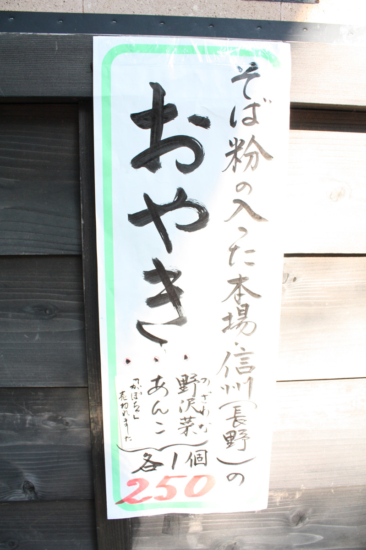 そば粉の入った本場・信州（長野）の
おやき
のざわな
野沢菜
あんこ
「かぼちゃ」
売切れました
各1個
250